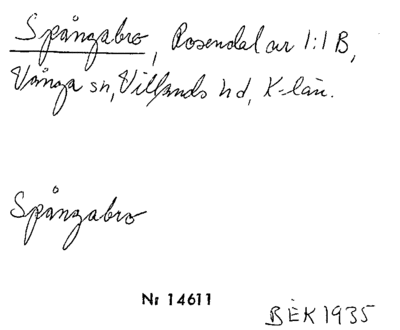 Spångabro, Rosendal av 1:1 B,
Vånga sn, Villands hd, K-län.
Spångabro
Nr 14611
BEK 1935